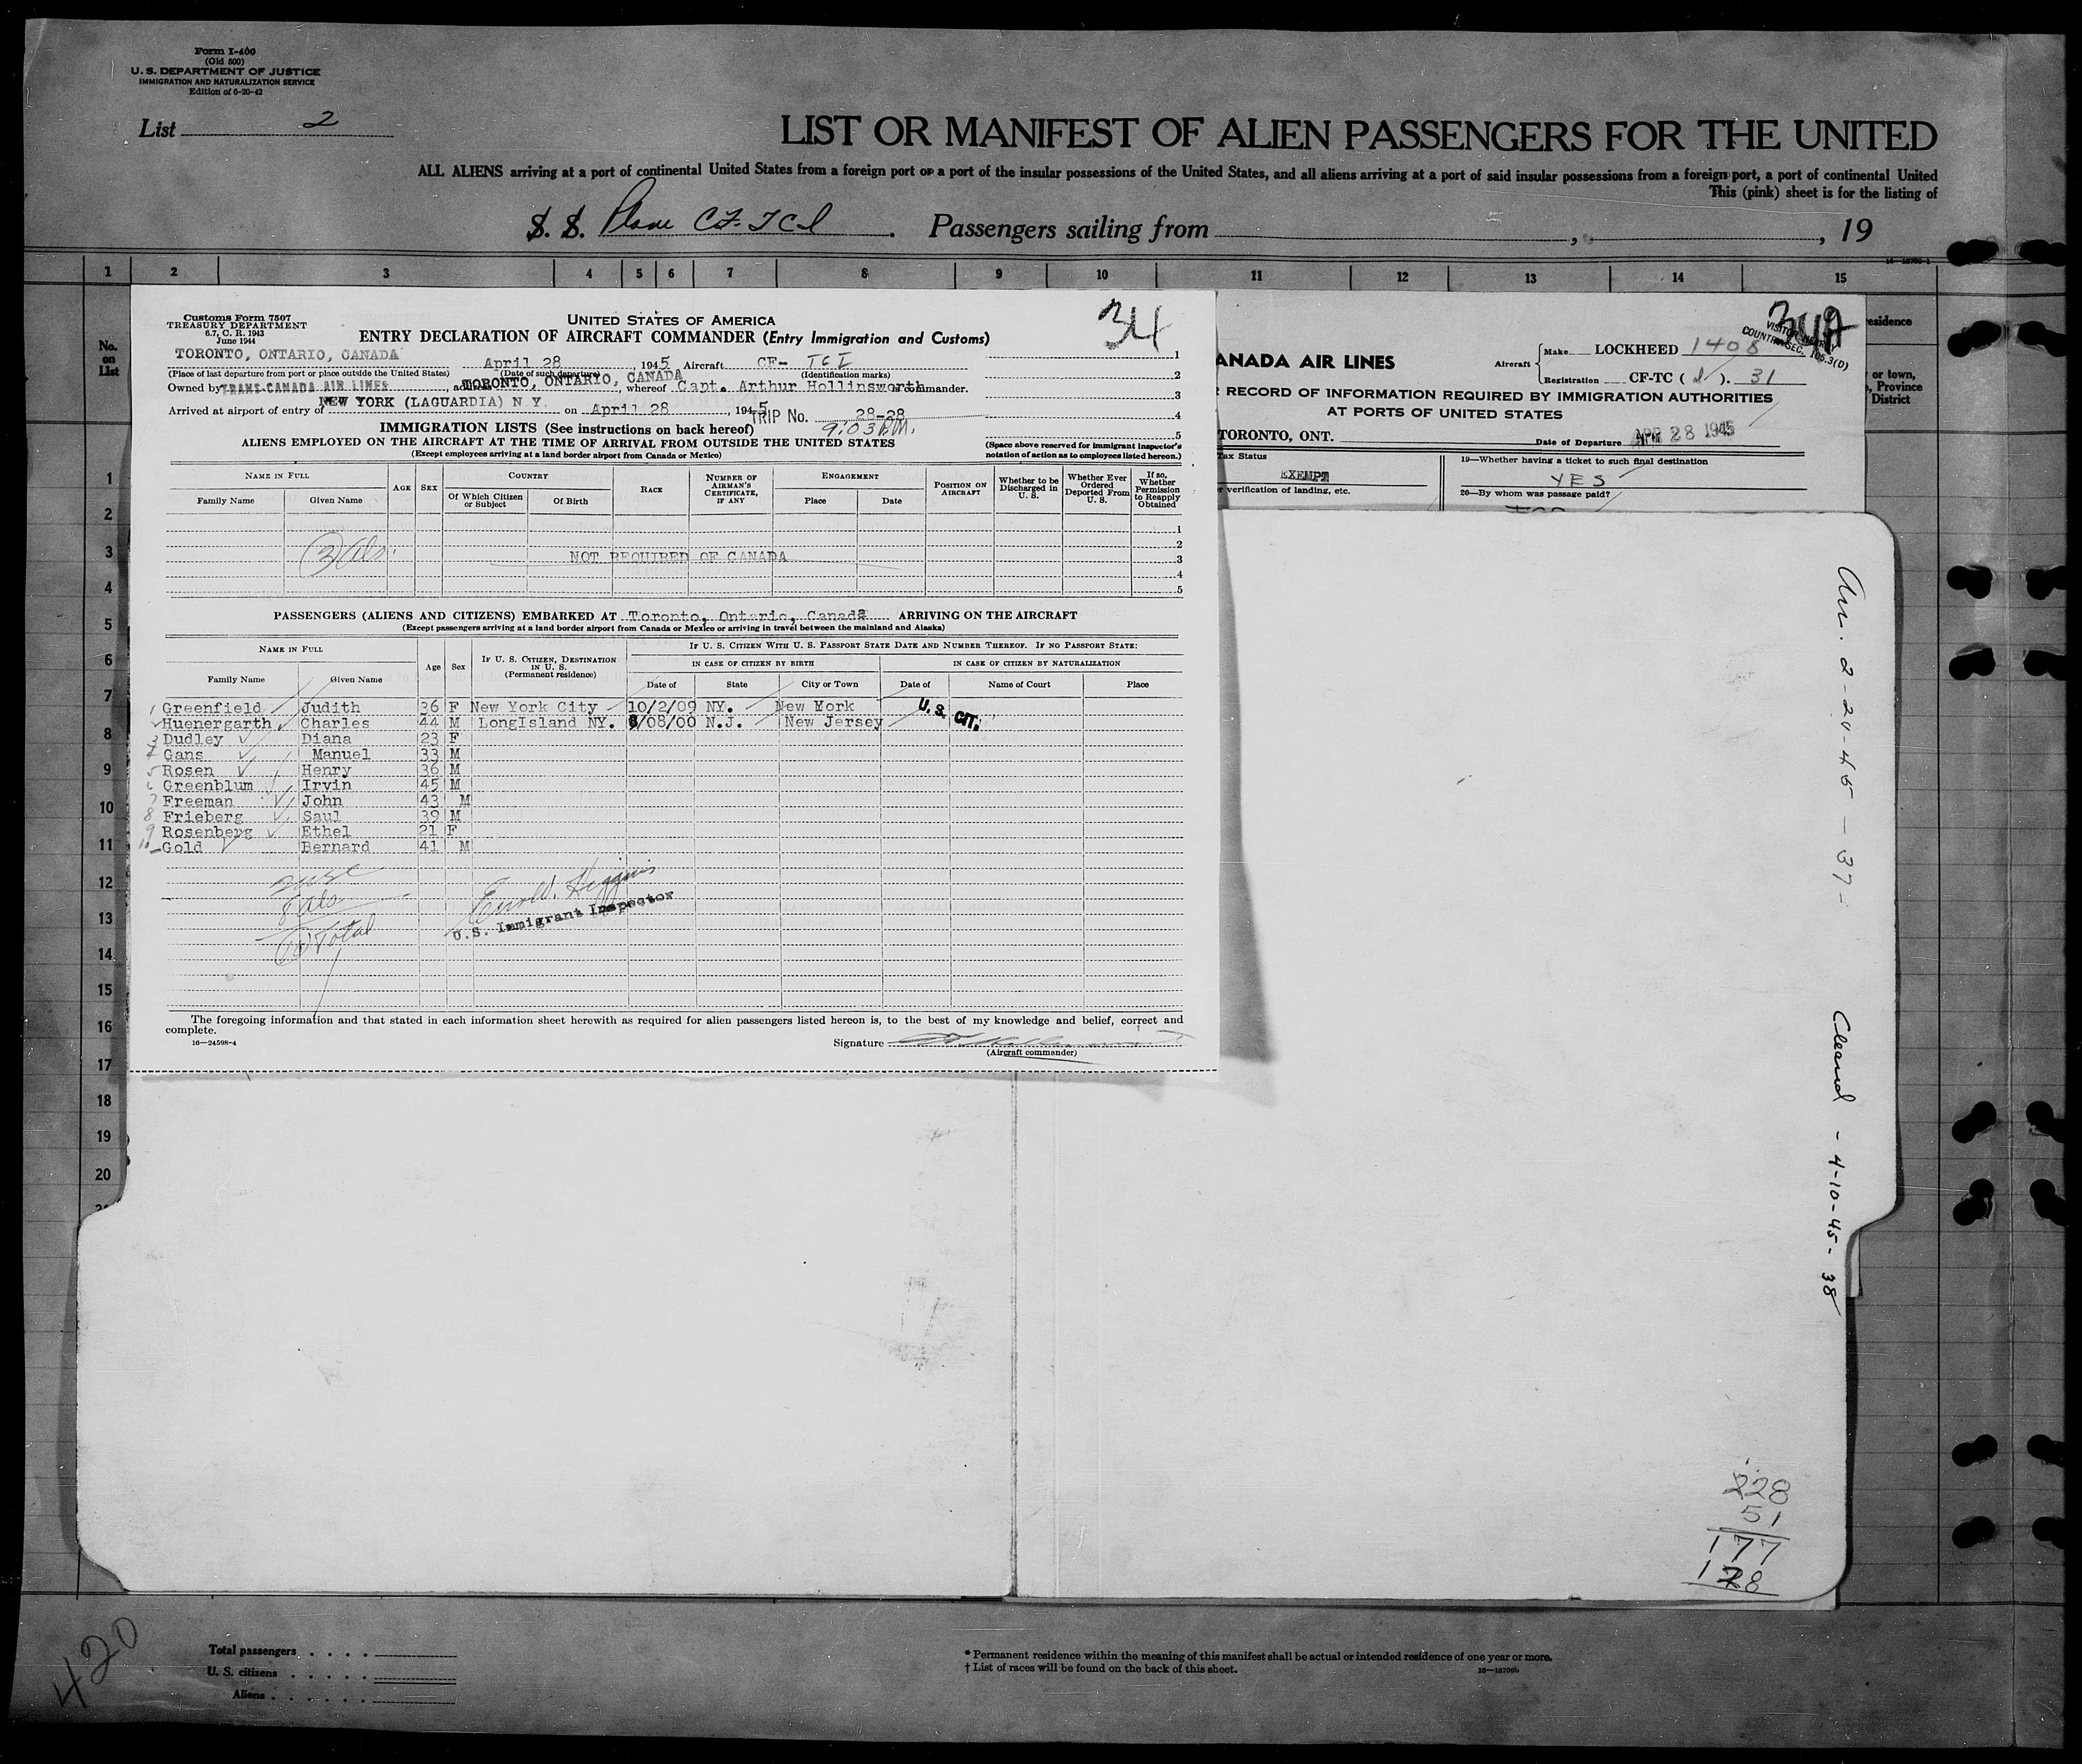 Form I-400
(Old 500)
U. S. DEPARTMENT OF JUSTICE
IMMIGRATION AND NATURALIZATION SERVICE
Edition of 6-20-42
List 2
LIST OR MANIFEST OF ALIEN PASSENGERS FOR THE UNITED
ALL ALIENS arriving at a port of continental United States from a foreign port or a port of the insular possessions of the United States, and all aliens arriving at a port of said insular possessions from a foreign port, a port of continental United
This (pink) sheet is for the listing of
S. S. Plane CF-TCI . Passengers sailing from , , 19
16-18700-1
1 2 3 4 5 6 7 8 9 10 11 12 13 14 15
No. on List
Customs Form 7507
TREASURY DEPARTMENT
6.7, C. R. 1943
June 1944
UNITED STATES OF AMERICA
34
ENTRY DECLARATION OF AIRCRAFT COMMANDER (Entry Immigration and Customs)
TORONTO, ONTARIO, CANADA April 28 1945 Aircraft CF- TCI 1
(Place of last departure from port or place outside the United States) (Date of such departure) (Identification marks) 2
Owned by TRANS-CANADA AIR LINES, address TORONTO, ONTARIO, CANADA, whereof Capt. Arthur Hollinsworth commander.
3
Arrived at airport of entry of NEW YORK (LAGUARDIA) N Y. on April 28, 1945 TRIP No. 28-28 4
9:03 P.M.
IMMIGRATION LISTS (See instructions on back hereof) 5
ALIENS EMPLOYED ON THE AIRCRAFT AT THE TIME OF ARRIVAL FROM OUTSIDE THE UNITED STATES
(Except employees arriving at a land border airport from Canada or Mexico)
(Space above reserved for immigrant inspector's notation of action as to employees listed hereon.)
NAME IN FULL AGE SEX COUNTRY RACE NUMBER OF AIRMAN'S CERTIFICATE, IF ANY ENGAGEMENT POSITION ON AIRCRAFT Whether to be Discharged in U. S. Whether Ever Ordered Deported From U. S. If so, Whether Permission to Reapply Obtained
Family Name Given Name Of Which Citizen or Subject Of Birth Place Date
1
2
(3) Als. NOT REQUIRED OF CANADA 3
4
5
PASSENGERS (ALIENS AND CITIZENS) EMBARKED AT Toronto, Ontario, Canada ARRIVING ON THE AIRCRAFT
(Except passengers arriving at a land border airport from Canada or Mexico or arriving in travel between the mainland and Alaska)
NAME IN FULL Age Sex IF U. S. CITIZEN, DESTINATION IN U. S. (Permanent residence) IF U. S. CITIZEN WITH U. S. PASSPORT STATE DATE AND NUMBER THEREOF. IF NO PASSPORT STATE:
IN CASE OF CITIZEN BY BIRTH IN CASE OF CITIZEN BY NATURALIZATION
Family Name Given Name Date of State City or Town Date of Name of Court Place
1 Greenfield Judith 36 F New York City 10/2/09 NY. New Mork U.S. CIT.
2 Huenergarth Charles 44 M LongIsland NY. 6/08/00 N.J. New Jersey
3 Dudley Diana 23 F
4 Gans Manuel 33 M
5 Rosen Henry 36 M
6 Greenblum Irvin 45 M
7 Freeman John 43 M
8 Frieberg Saul 39 M
9 Rosenberg Ethel 21 F
10 Gold Bernard 41 M
2 USC
8 Als
(10) Total
Higgins
U.S. Immigrant Inspector
The foregoing information and that stated in each information sheet herewith as required for alien passengers listed hereon is, to the best of my knowledge and belief, correct and
complete.
16-24598-4
Signature
(Aircraft commander)
ANADA AIR LINES
Aircraft Make LOCKHEED 1408
Registration CF-TC ( I ). 31
34A
VISITOR
COUNTRY SEC. 165.3(D)
RECORD OF INFORMATION REQUIRED BY IMMIGRATION AUTHORITIES
AT PORTS OF UNITED STATES
TORONTO, ONT. Date of Departure APR 28 1945
Tax Status
EXEMPT
verification of landing, etc.
19—Whether having a ticket to such final destination
YES
20—By whom was passage paid?
esidence
or town,
, Province
District
1
2
3
4
5
6
7
8
9
10
11
12
13
14
15
16
17
18
19
20
Arr. 2-24-45 - 37-
Cleared - 4-10-45 - 38
228
51
177
128
420
Total passengers
U. S. citizens
Aliens
* Permanent residence within the meaning of this manifest shall be actual or intended residence of one year or more.
† List of races will be found on the back of this sheet.
16-18700b